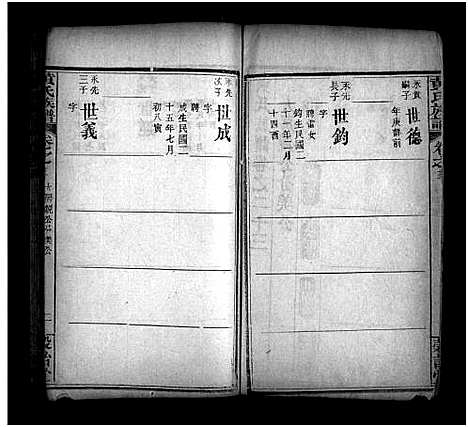 黃氏族譜
永貴
嗣子
世德
年庚詳前
永先
長子
世鈞
字
聘雷女
鈞生民國二
十一年二月
十四酉
永先
次子
世成
字
聘
成生民國二
十五年七月
初八寅
永先
三子
世義
字
黃氏族譜